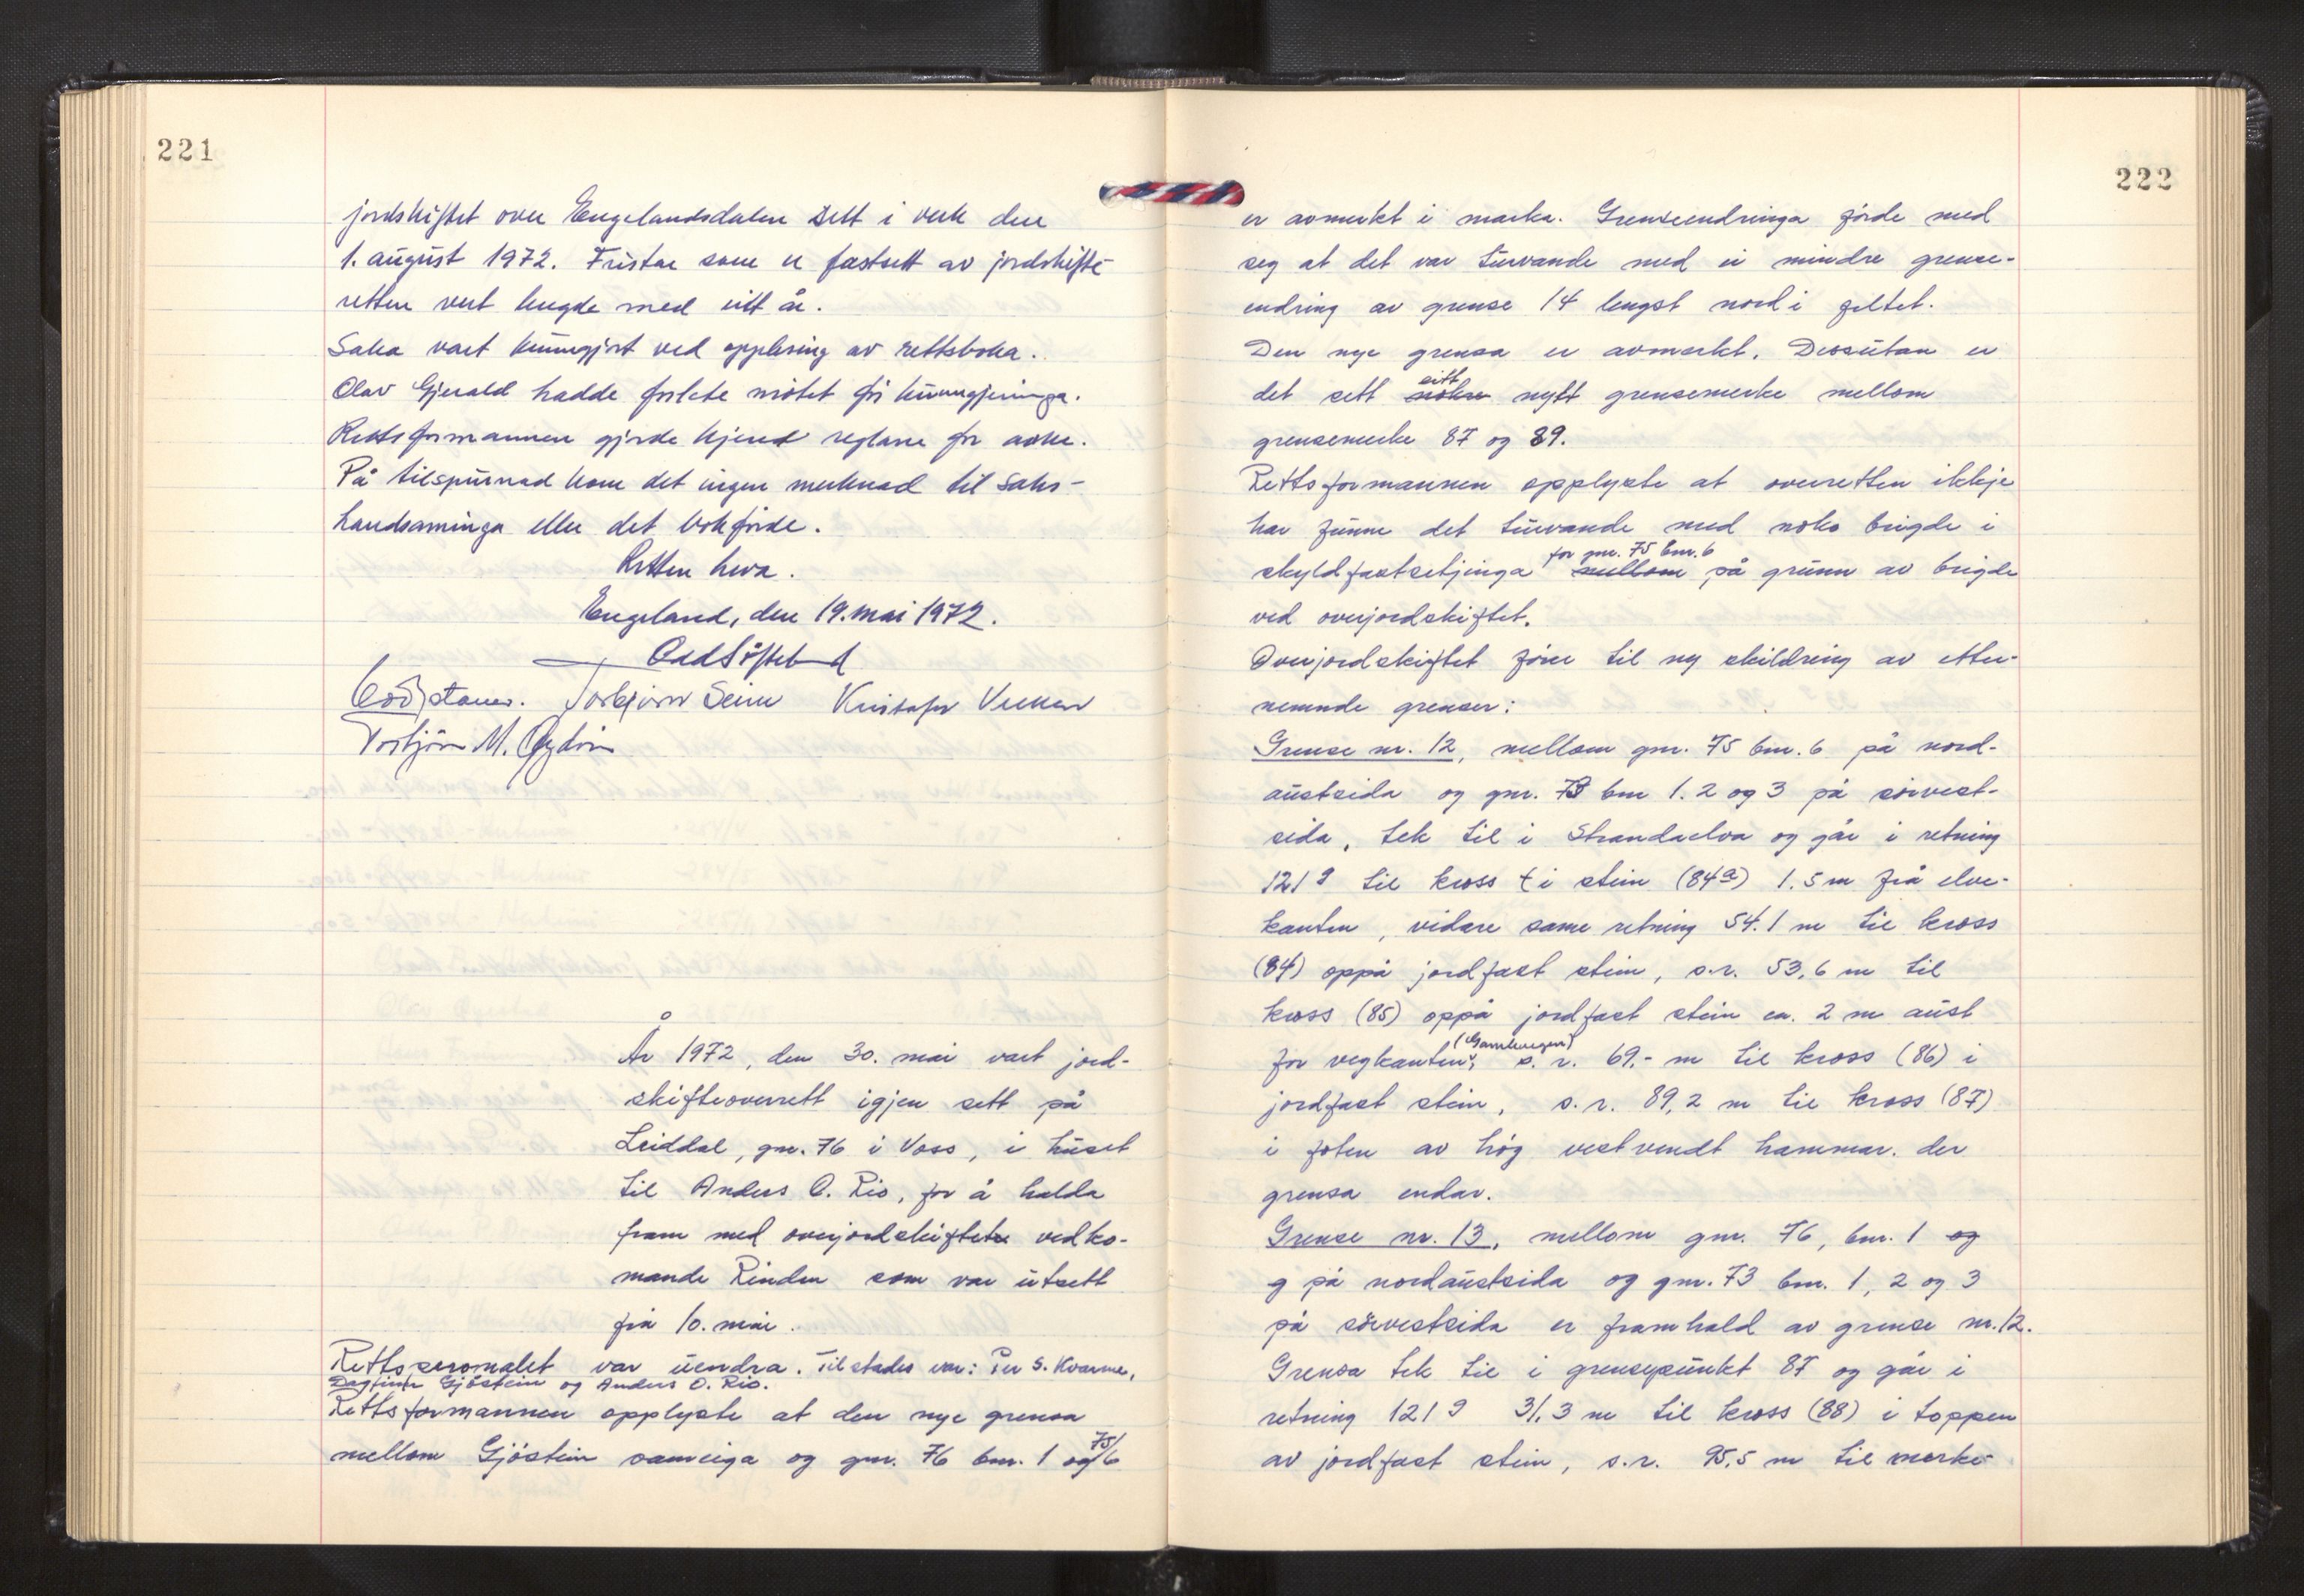 221
jordskiftet over Engelandsdalen sett i verk den
1. august 1972. Fristar som er fastsett av jordskifte-
retten vert lengde med eitt år.
Saka vart kunngjort ved opplesing av rettsboka.
Olav Gjerald hadde forlate møtet før kunngjeringa.
Rettsformannen gjorde kjend reglane for anke.
På tilspurnad kom det ingen merknad til saks-
handsaminga eller det bokførde.
Retten heva.
Engeland, den 19. mai 1972.
Torbjørn Seim Kristofer
Torbjørn M.
År 1972, den 30. mai vart jord-
skifteoverrett igjen sett på
Leiddal, gnr. 76 i Voss, i huset
til Anders O. Rio, for å halda
fram med overjordskiftet vedko-
mande Rinden som var utsett
frå 10. mai.
Rettspersonalet var uendra. Til stades var: Per S. Kvarme,
Dagfinn Gjøstein og Anders O. Rio.
Rettsformannen opplyste at den nye grensa
mellom Gjøstein sameiga og gnr. 76 bnr. 1 og 75/6
222
er avmerkt i marka. Grenseendringa førde med
seg at det var turvande med ei mindre grense-
endring av grense 14 lengst nord i feltet.
Den nye grensa er avmerkt. Dessutan er
det sett eitt nytt grensemerke mellom
grensemerke 87 og 89.
Rettsformannen opplyste at overretten ikkje
har funne det turvande med noko brigde i
skyldfastsetjinga for gnr. 75 bnr. 6 på grunn av brigde
ved overjordskiftet.
Overjordskiftet fører til ny skildring av etter-
nemnde grenser:
Grense nr. 12, mellom gnr. 75 bnr. 6 på nord-
austsida og gnr. 73 bnr 1. 2 og 3 på sørvest-
sida, tek til i Strandaelva og går i retning
121 g til kross + i stein (84a) 1.5 m frå elve-
kanten, vidare same retning 54.1 m til kross
(84) oppå jordfast stein, s.r. 53,6 m til
kross (85) oppå jordfast stein ca. 2 m aust
for vegkanten (Gamlevegen), s. r. 69,- m til kross (86) i
jordfast stein, s. r. 89,2 m til kross (87)
i foten av høg vestvendt hammar. der
grensa endar.
Grense nr. 13, mellom gnr. 76, bnr. 1 og
9 på nordaustsida og gnr. 73 bnr. 1, 2 og 3
på sørvestsida er framhald av grense nr. 12.
Grensa tek til i grensepunkt 87 og går i
retning 121 g 31,3 m til kross (88) i toppen
av jordfast stein, s.r. 95,5 m til merke-